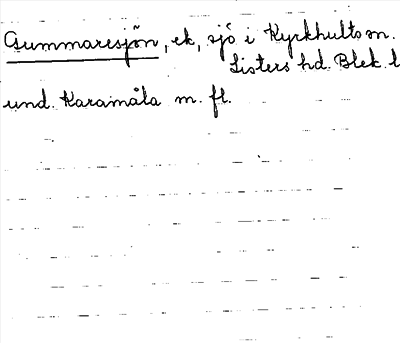 Gummaresjön, ek, sjö i Kyrkhults m.
Listers hd. Blek. l
und. Karamåla m. fl.